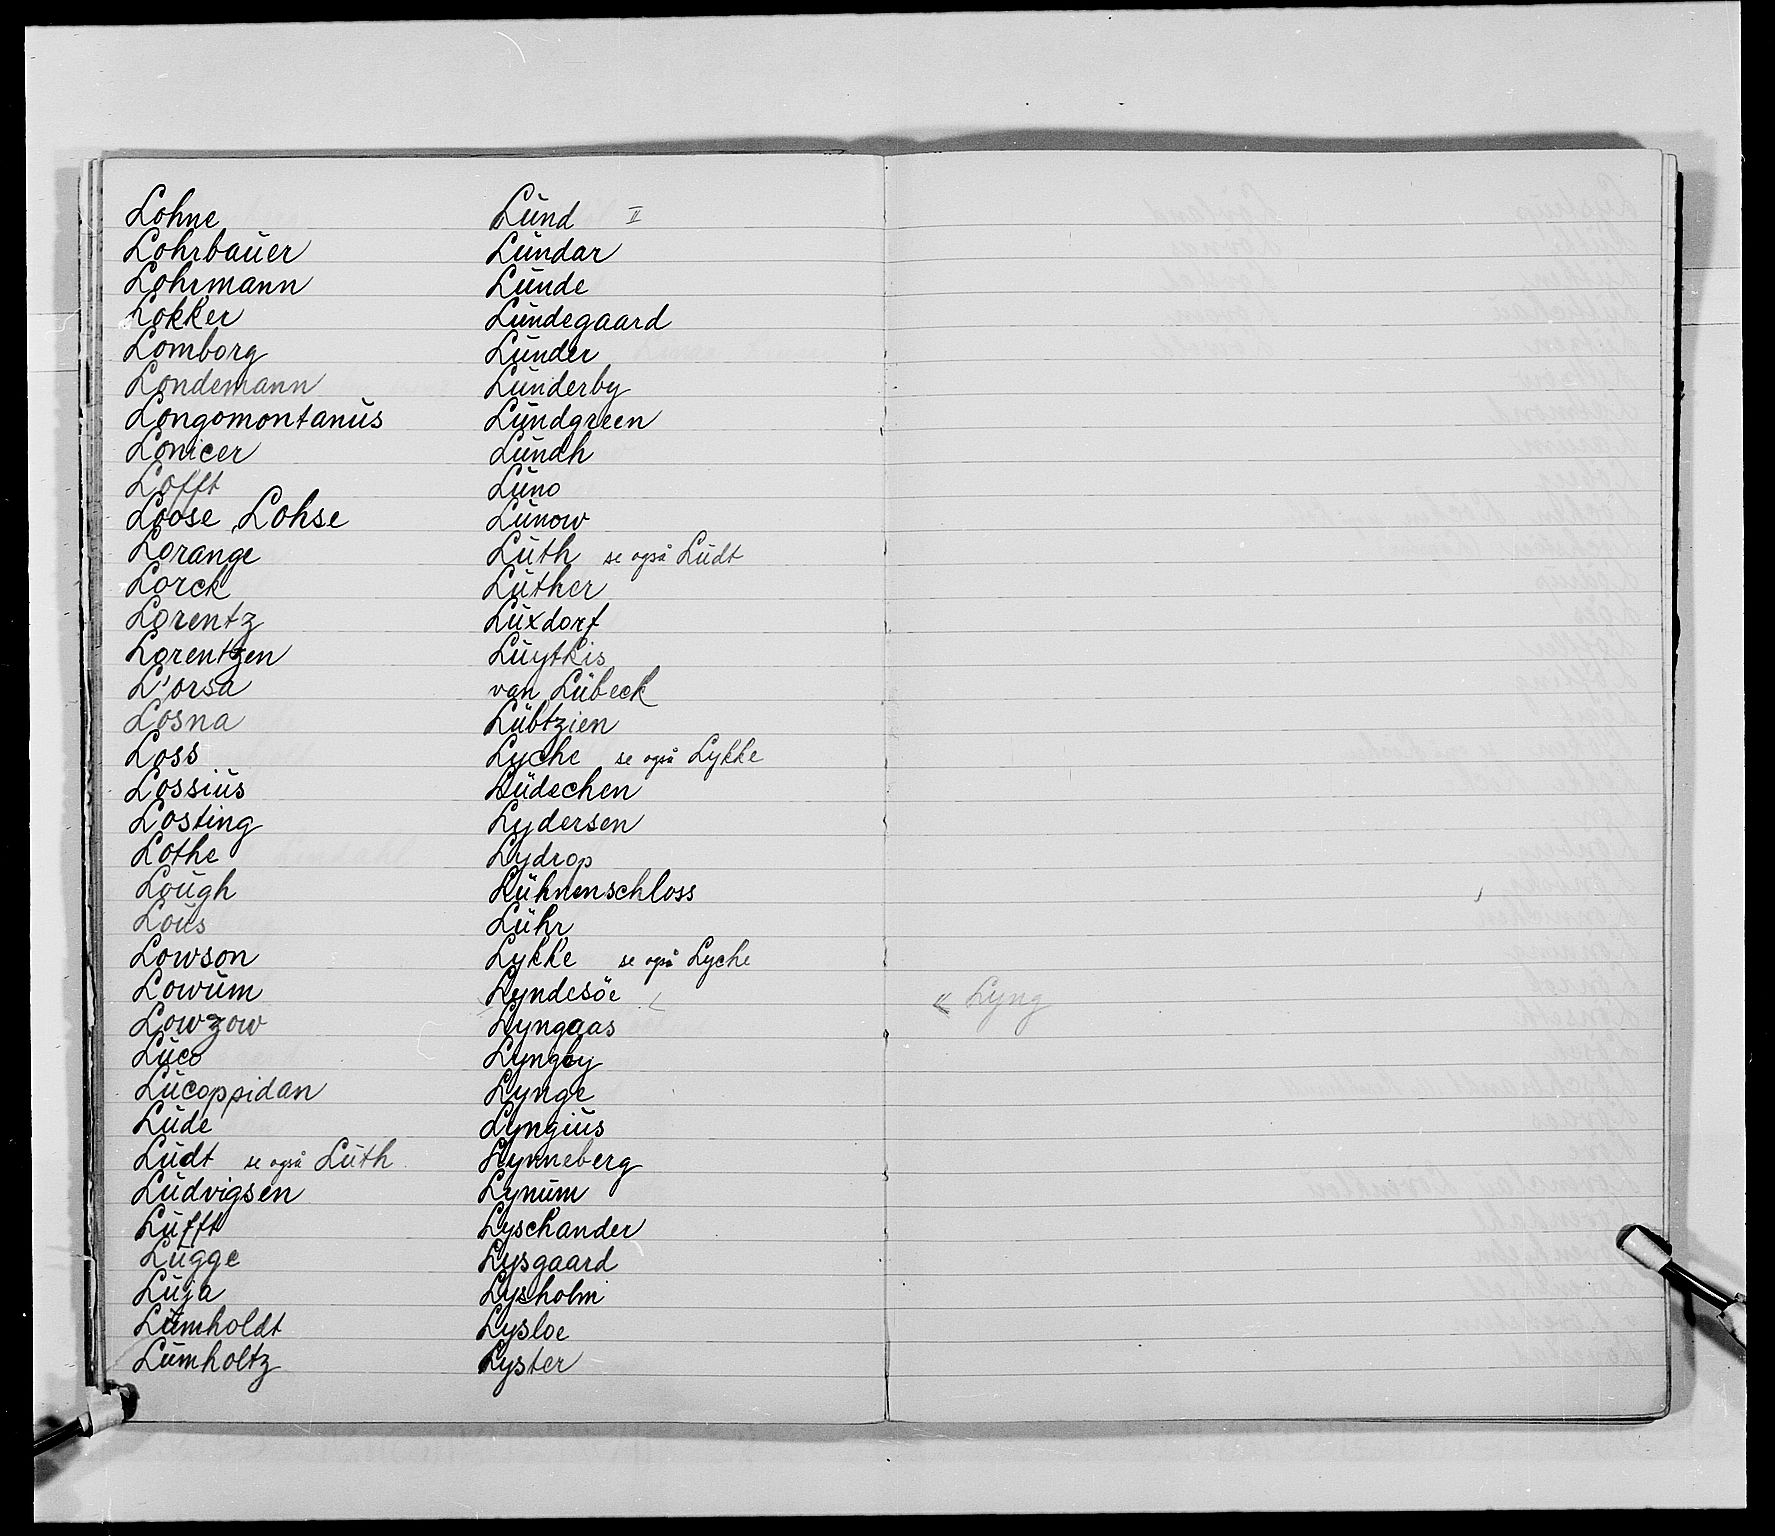 Lohne
Lohrbauer
Lohrmann
Lokker
Lomborg
Londemann
Longomontanus
Lonicer
Lofft
Loose, Lohse
Lorange
Lorck
Lorentz
Lorentzen
L'orsa
Losna
Loss
Lossius
Losting
Lothe
Lough
Lous
Lowson
Lowum
Lowzow
Luco
Lucoppidan
Lude
Ludt se også Luth
Ludvigsen
Lufft
Lugge
Luja
Lumholdt
Lumholtz
Lund II
Lundar
Lunde
Lundegaard
Lunder
Lunderby
Lundgreen
Lundh
Luno
Lunow
Luth se også Ludt
Luther
Luxdorf
Luytkis
van Lübeck
Lübtzien
Lyche se også Lykke
Lüdechen
Lydersen
Lydrop
Lühnenschloss
Lühr
Lykke se også Lyche
Lyndesöe
Lyngaas
Lyngby
Lynge
Lyngius
Lynneberg
Lynum
Lyschander
Lysgaard
Lysholm
Lysloe
Lyster
Lyng